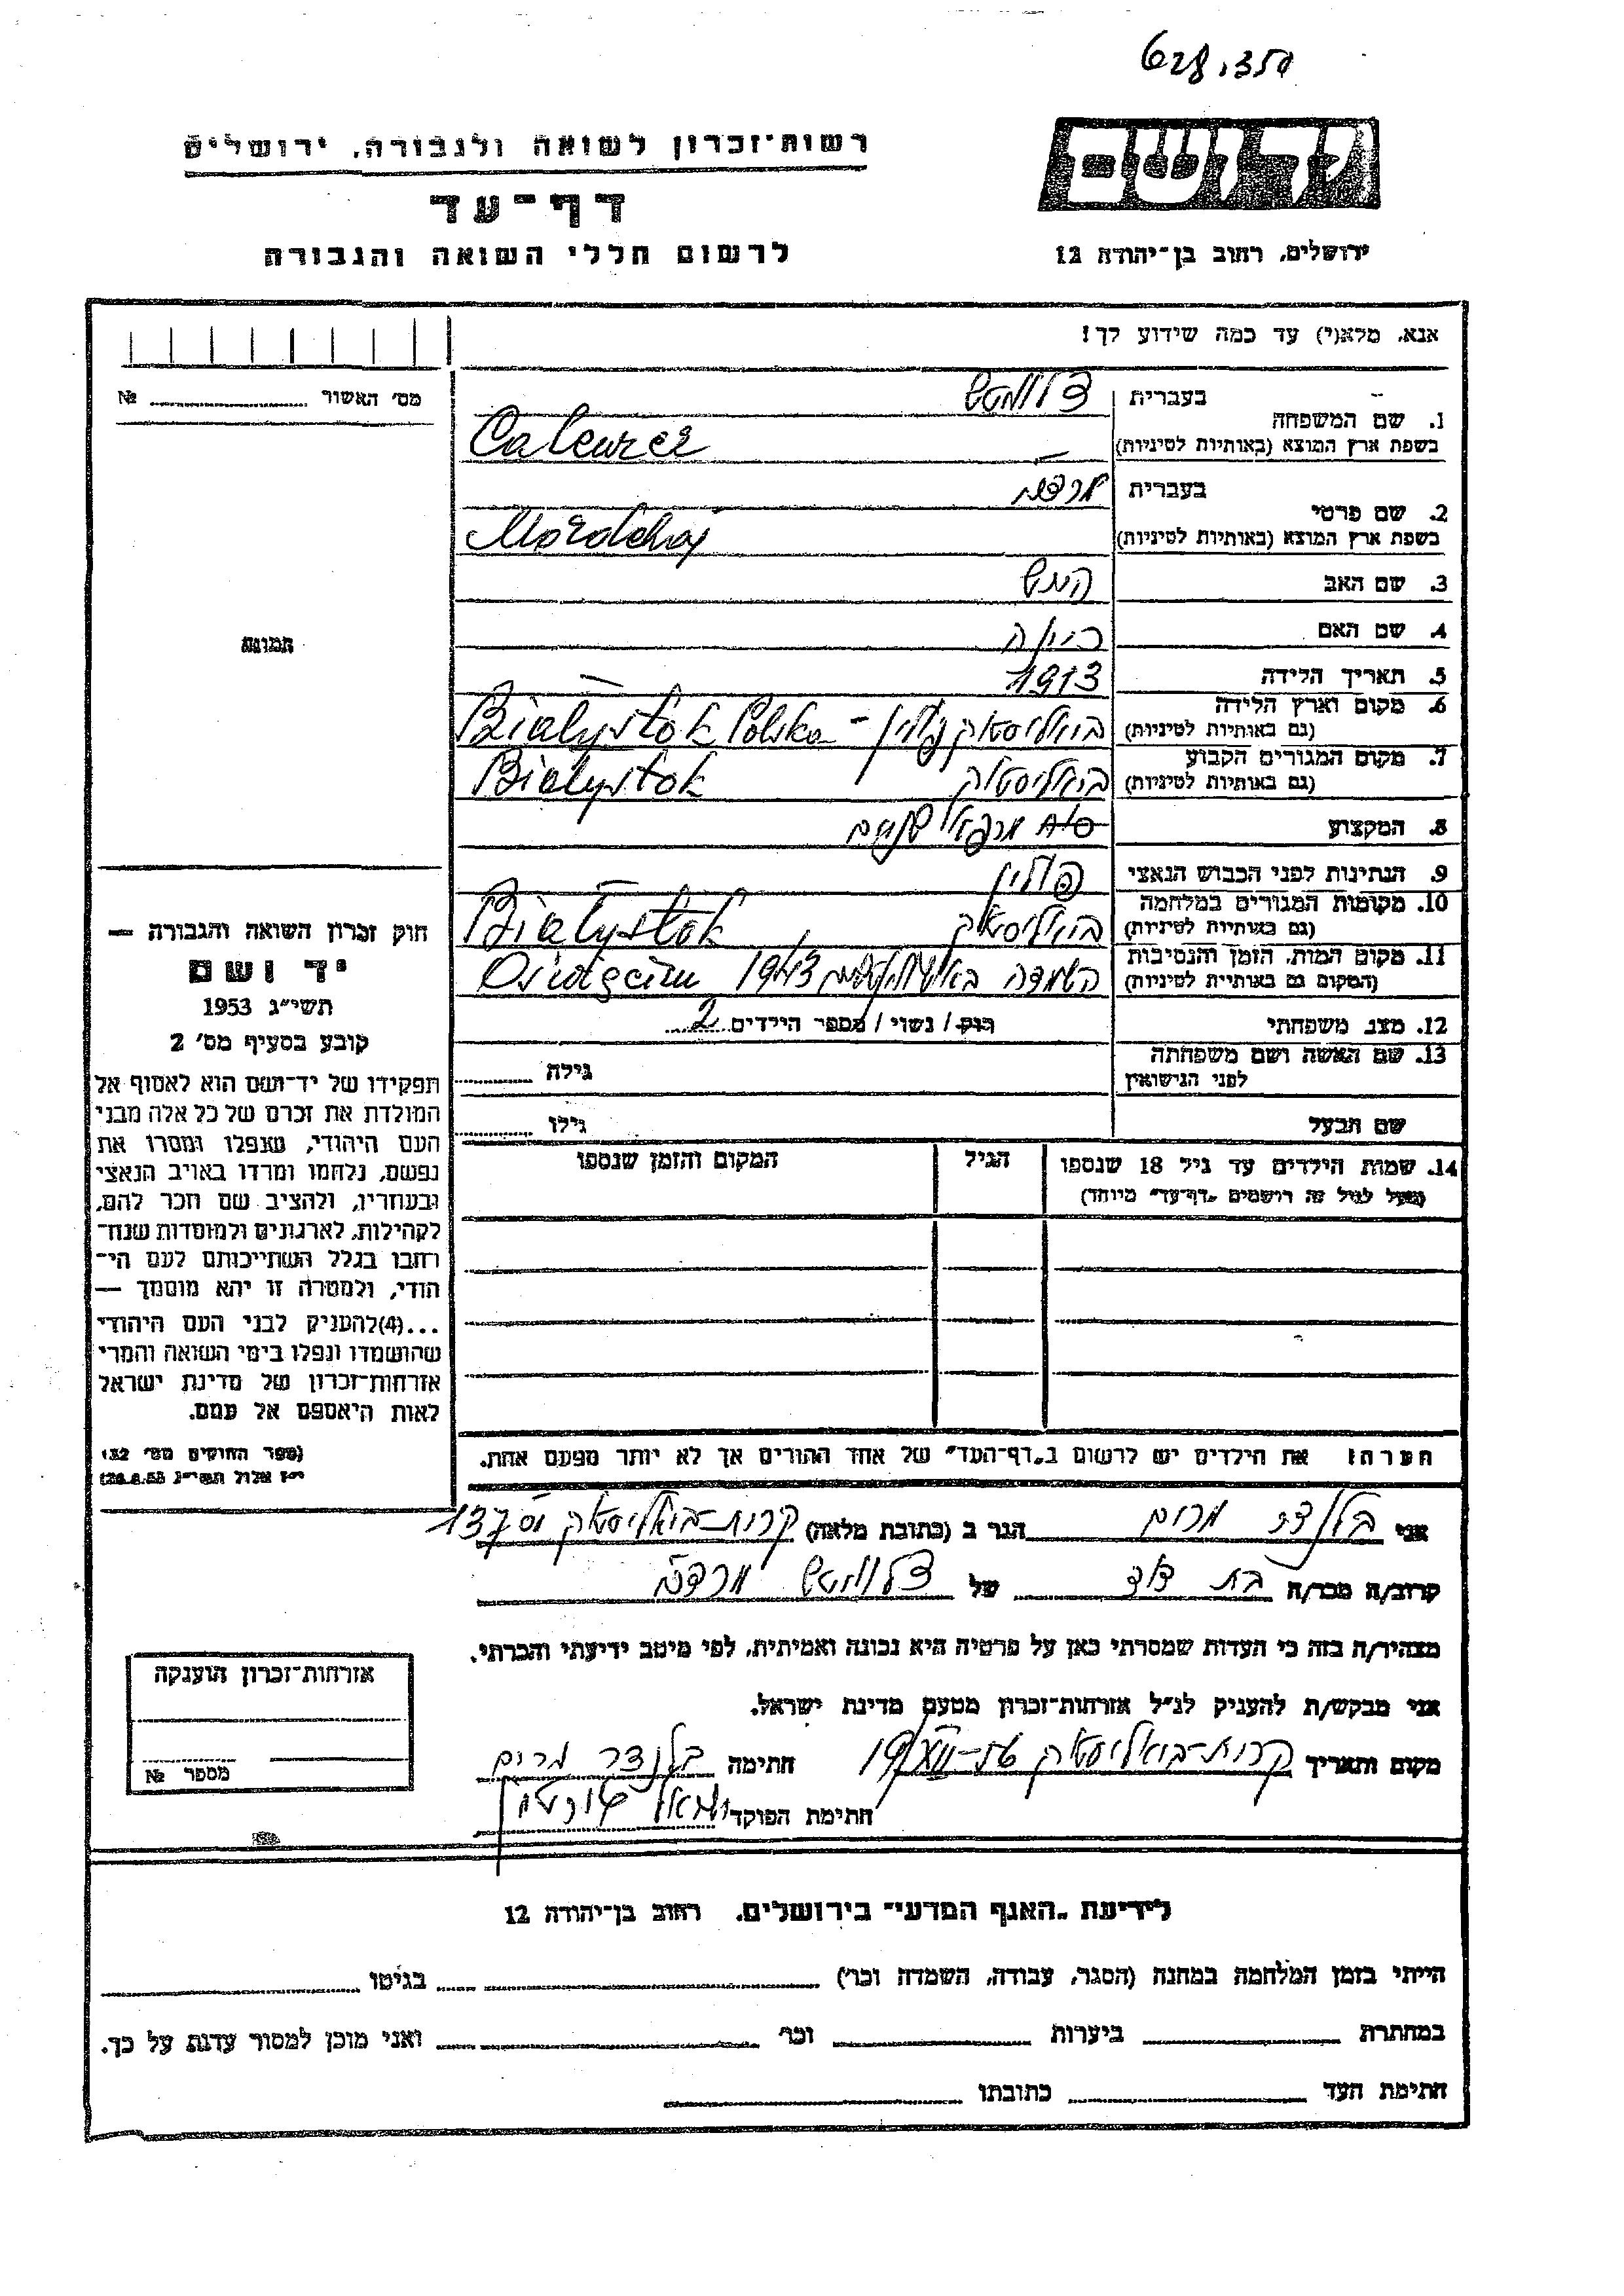 628.350
ידושם
רשות־זכרון לשואה ולגבורה, ירושלים
דף־עד
לרשום חללי השואה והגבורה
ירושלים, רחוב בן־יהודה 12
אנא, מלא(י) עד כמה שידוע לך!
מס׳ האשור № ........
1. שם המשפחה
בעברית
בשפת ארץ המוצא (באותיות לטיניות)
2. שם פרטי
בעברית מרדכי
בשפת ארץ המוצא (באותיות לטיניות) Mordchaj
3. שם האב
4. שם האם
5. תאריך הלידה 1913
6. מקום וארץ הלידה
(גם באותיות לטיניות) ביאליסטוק פולין - Białystok Polska
7. מקום המגורים הקבוע
(גם באותיות לטיניות) ביאליסטוק Białystok
8. המקצוע
9. הנתינות לפני הכבוש הנאצי פולין
10. מקומות המגורים במלחמה
(גם באותיות לטיניות) ביאליסטוק Białystok
11. מקום המות, הזמן והנסיבות
(המקום גם באותיות לטיניות) השמדה 1943 Oświęcim
12. מצב משפחתי רווק / נשוי / מספר הילדים 2
13. שם האשה ושם משפחתה
לפני הנישואין
גילה
שם הבעל
גילו
14. שמות הילדים עד גיל 18 שנספו
(מעל לגיל זה רושמים „דף־עד״ מיוחד)
הגיל
המקום והזמן שנספו
הערה: את הילדים יש לרשום ב„דף־העד״ של אחד ההורים אך לא יותר מפעם אחת.
תמונה
חוק זכרון השואה והגבורה —
יד ושם
תשי״ג 1953
קובע בסעיף מס׳ 2
תפקידו של יד־ושם הוא לאסוף אל
המולדת את זכרם של כל אלה מבני
העם היהודי, שנפלו ומסרו את
נפשם, נלחמו ומרדו באויב הנאצי
ובעוזריו, ולהציב שם וזכר להם,
לקהילות, לארגונים ולמוסדות שנח־
רבו בגלל השתייכותם לעם הי־
הודי, ולמטרה זו יהא מוסמך —
...(4) להעניק לבני העם היהודי
שהושמדו ונפלו בימי השואה והמרי
אזרחות־זכרון של מדינת ישראל
לאות היאספם אל עמם.
(ספר החוקים מס׳ 132,
י״ז אלול תשי״ג 28.8.53)
אני מרים הגר ב (כתובת מלאה) קרית-ביאליסטוק
קרוב/ה מכר/ה בת דוד של מרדכי
מצהיר/ה בזה כי העדות שמסרתי כאן על פרטיה היא נכונה ואמיתית, לפי מיטב ידיעתי והכרתי.
אני מבקש/ת להעניק לנ״ל אזרחות־זכרון מטעם מדינת ישראל.
מקום ותאריך קרית-ביאליסטוק חתימה מרים
חתימת הפוקד
אזרחות־זכרון הוענקה
מספר №
לידיעת „האגף המדעי״ בירושלים, רחוב בן־יהודה 12
הייתי בזמן המלחמה במחנה (הסגר, עבודה, השמדה וכו׳) בגיטו
במחתרת ביערות וכו׳ ואני מוכן למסור עדות על כך.
חתימת העד כתובתו